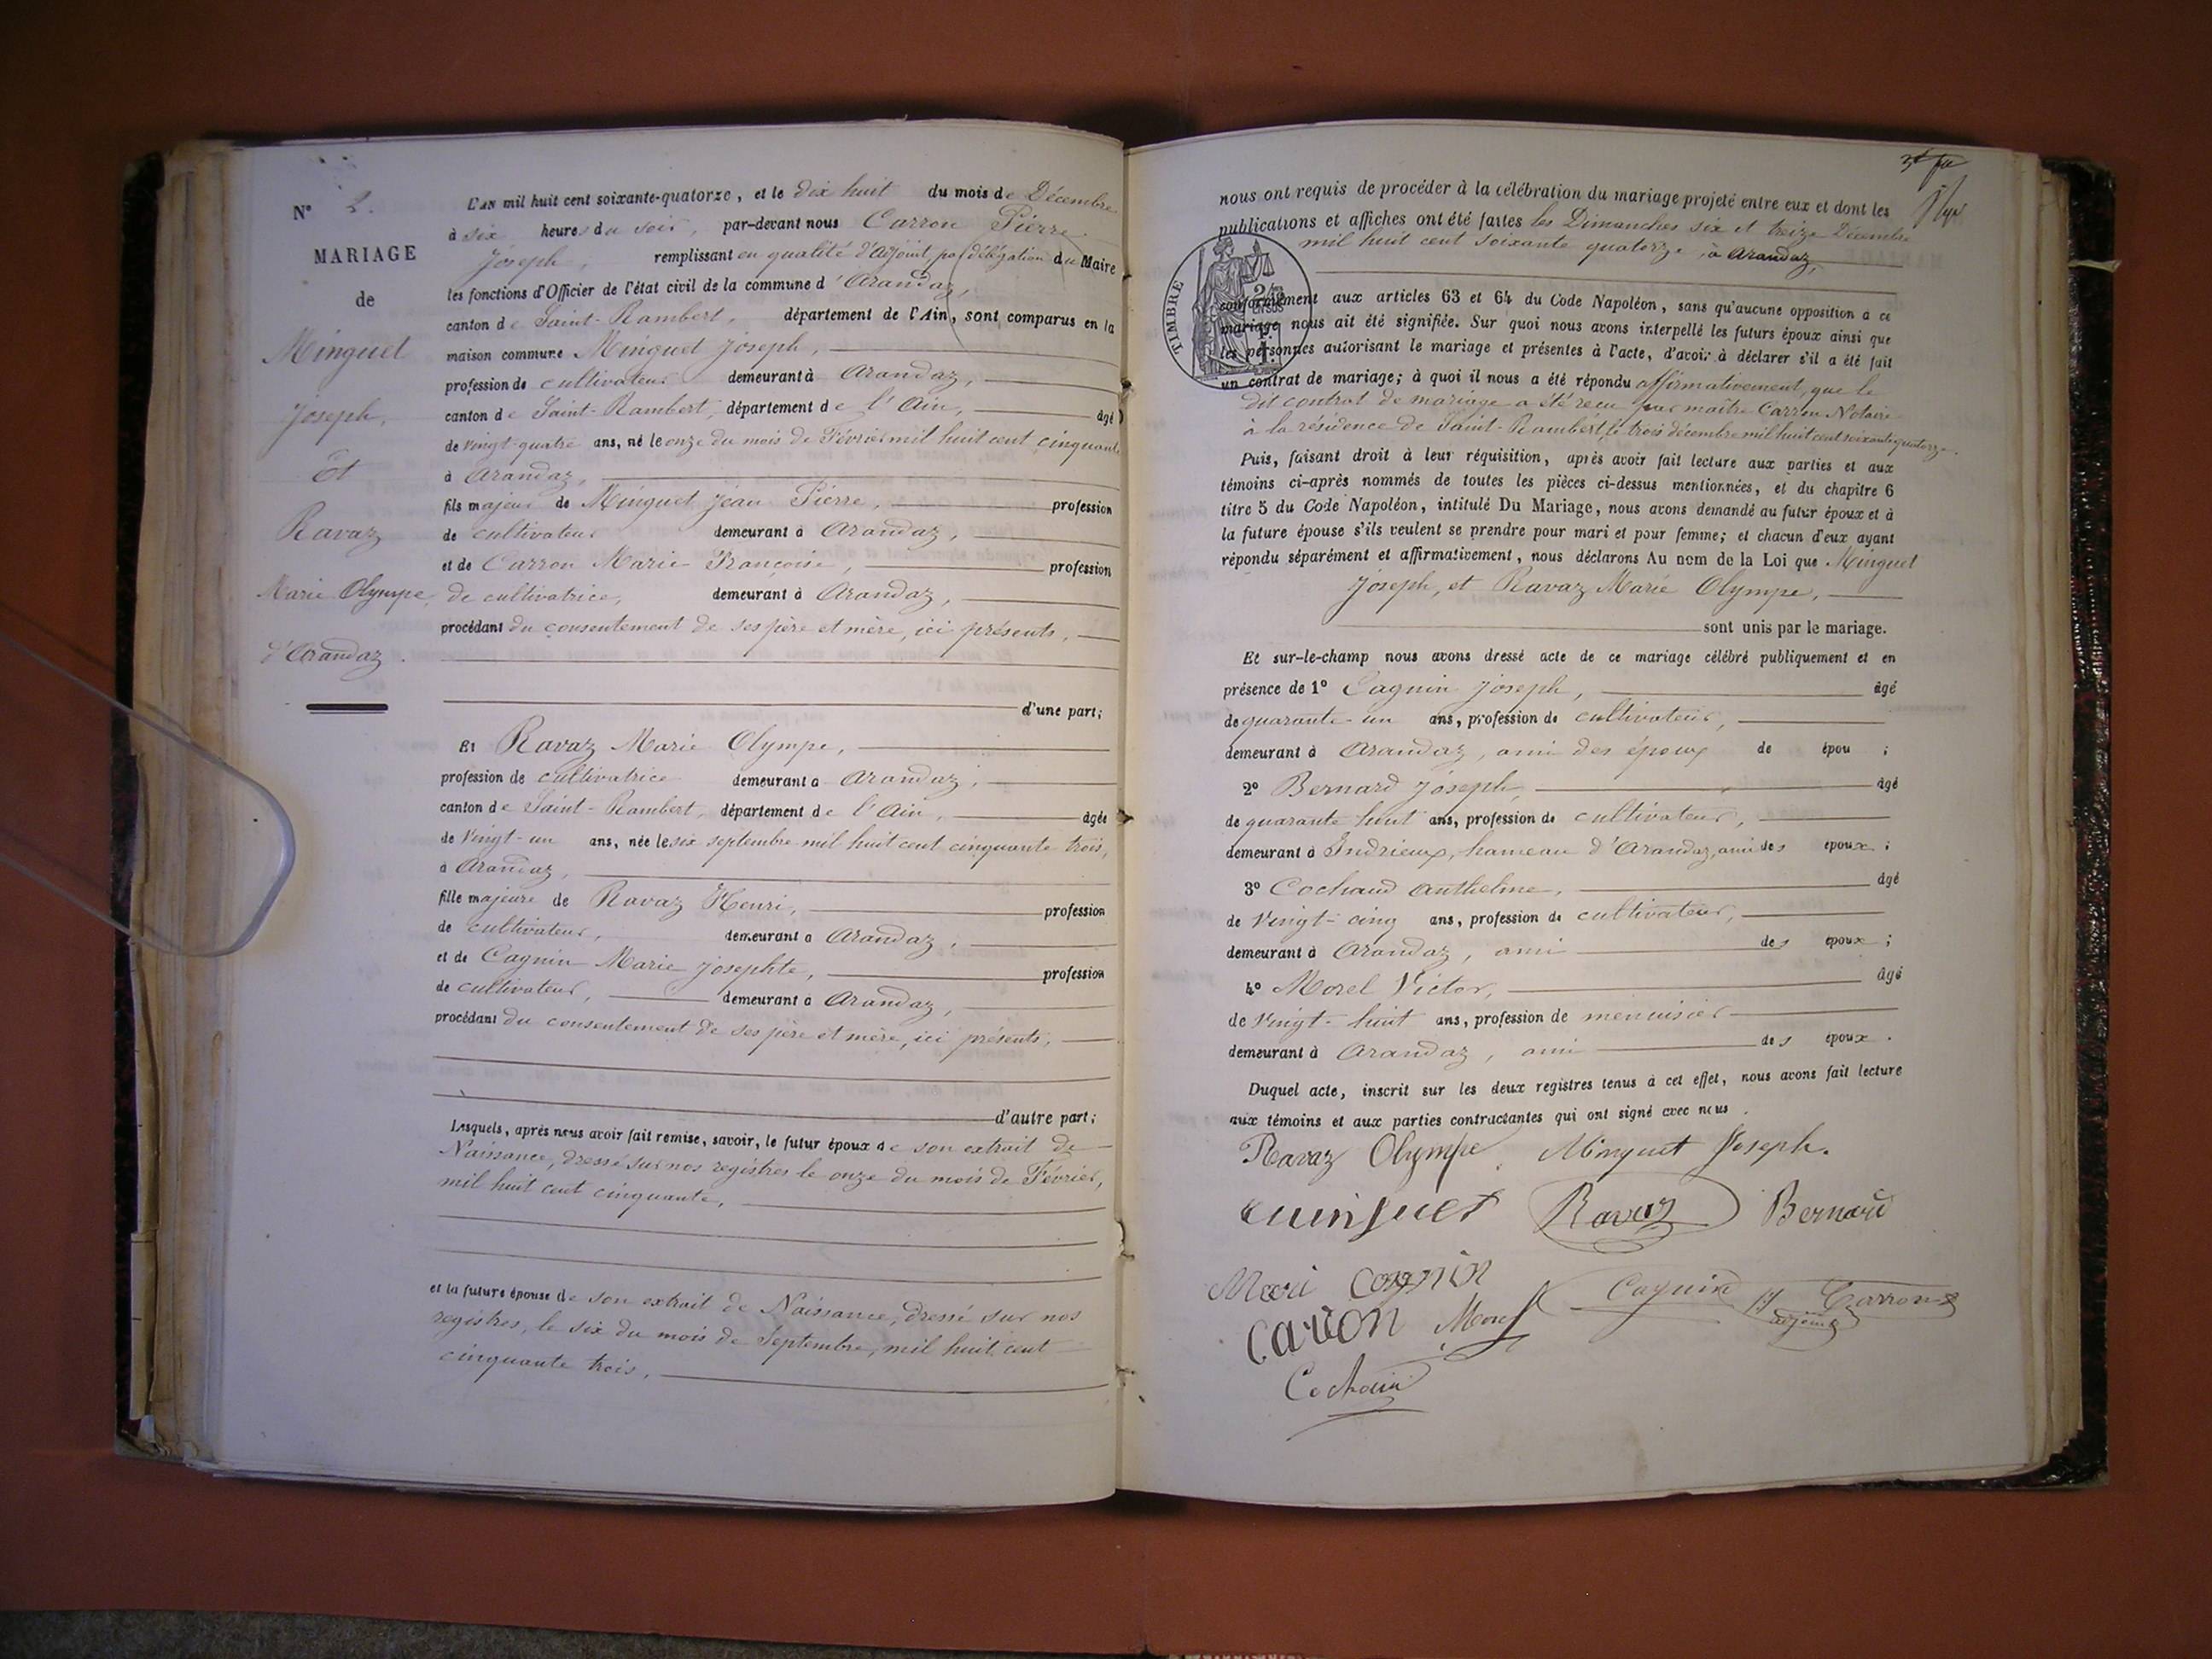 N° 2.
MARIAGE
de
Minguet
Joseph,
Et
Ravaz
Marie Olympe,
d'Arandaz.
L'AN mil huit cent soixante-quatorze, et le dix huit du mois de Décembre
à six heures du soir, par-devant nous Carron Pierre
Joseph, remplissant en qualité d'adjoint, par délégation du Maire
les fonctions d'Officier de l'état civil de la commune d'Arandaz,
canton de Saint-Rambert, département de l'Ain, sont comparus en la
maison commune Minguet Joseph,
profession de cultivateur demeurant à Arandaz,
canton de Saint-Rambert, département de l'Ain, âgé
de vingt-quatre ans, né le onze du mois de Février mil huit cent cinquante
à Arandaz,
fils majeur de Minguet Jean Pierre, profession
de cultivateur demeurant à Arandaz,
et de Carron Marie Françoise, profession
de cultivatrice, demeurant à Arandaz,
procédant du consentement de ses père et mère, ici présents,
d'une part;
Et Ravaz Marie Olympe,
profession de cultivatrice demeurant à Arandaz,
canton de Saint-Rambert, département de l'Ain, âgée
de Vingt-un ans, née le six septembre mil huit cent cinquante trois,
à Arandaz,
fille majeure de Ravaz Henri, profession
de cultivateur, demeurant à Arandaz,
et de Cagnin Marie Josephte, profession
de cultivateur, demeurant à Arandaz,
procédant du consentement de ses père et mère, ici présents,
d'autre part;
Lesquels, après nous avoir fait remise, savoir, le futur époux de son extrait de
Naissance, dressé sur nos registres le onze du mois de Février,
mil huit cent cinquante,
et la future épouse de son extrait de Naissance, dressé sur nos
registres, le six du mois de Septembre, mil huit cent
cinquante trois,
nous ont requis de procéder à la célébration du mariage projeté entre eux et dont les
publications et affiches ont été faites les Dimanches six et treize Décembre
mil huit cent soixante quatorze, à Arandaz,
TIMBRE
conformément aux articles 63 et 64 du Code Napoléon, sans qu'aucune opposition à ce
mariage nous ait été signifiée. Sur quoi nous avons interpellé les futurs époux ainsi que
les personnes autorisant le mariage et présentes à l'acte, d'avoir à déclarer s'il a été fait
un contrat de mariage; à quoi il nous a été répondu affirmativement, que le
dit contrat de mariage a été recu par maître Carron Notaire
à la résidence de Saint-Rambert, le trois décembre mil huit cent soixante quatorze.
Puis, faisant droit à leur réquisition, après avoir fait lecture aux parties et aux
témoins ci-après nommés de toutes les pièces ci-dessus mentionnées, et du chapitre 6
titre 5 du Code Napoléon, intitulé Du Mariage, nous avons demandé au futur époux et à
la future épouse s'ils veulent se prendre pour mari et pour femme; et chacun d'eux ayant
répondu séparément et affirmativement, nous déclarons Au nom de la Loi que Minguet
Joseph, et Ravaz Marie Olympe,
sont unis par le mariage.
Et sur-le-champ nous avons dressé acte de ce mariage célébré publiquement et en
présence de 1° Cagnin Joseph, âgé
de quarante-un ans, profession de cultivateur,
demeurant à Arandaz, ami des époux de épou ;
2° Bernard Joseph, âgé
de quarante huit ans, profession de cultivateur,
demeurant à Indrieux, hameau d'Arandaz, ami des époux ;
3° Cochaud Anthelme, âgé
de Vingt-cinq ans, profession de cultivateur,
demeurant à Arandaz, ami des époux ;
4° Morel Victor, âgé
de Vingt-huit ans, profession de menuisier
demeurant à Arandaz, ami des époux.
Duquel acte, inscrit sur les deux registres tenus à cet effet, nous avons fait lecture
aux témoins et aux parties contractantes qui ont signé avec nous.
Ravaz Olympe Minguet Joseph.
Ravaz Bernard
Morel Cagnin Carron
adjoint